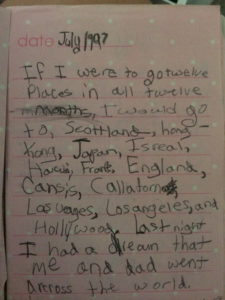 date July/1997
If I were to go twelve
Places in all twelve
months, I would go
to, Scottland, hong-
Kong, Japan, Isreal,
England,
Cansis,
Las vages, Los angeles, and
Hollywood. Last night
I had a dream that
me and dad went
Arcross the world.